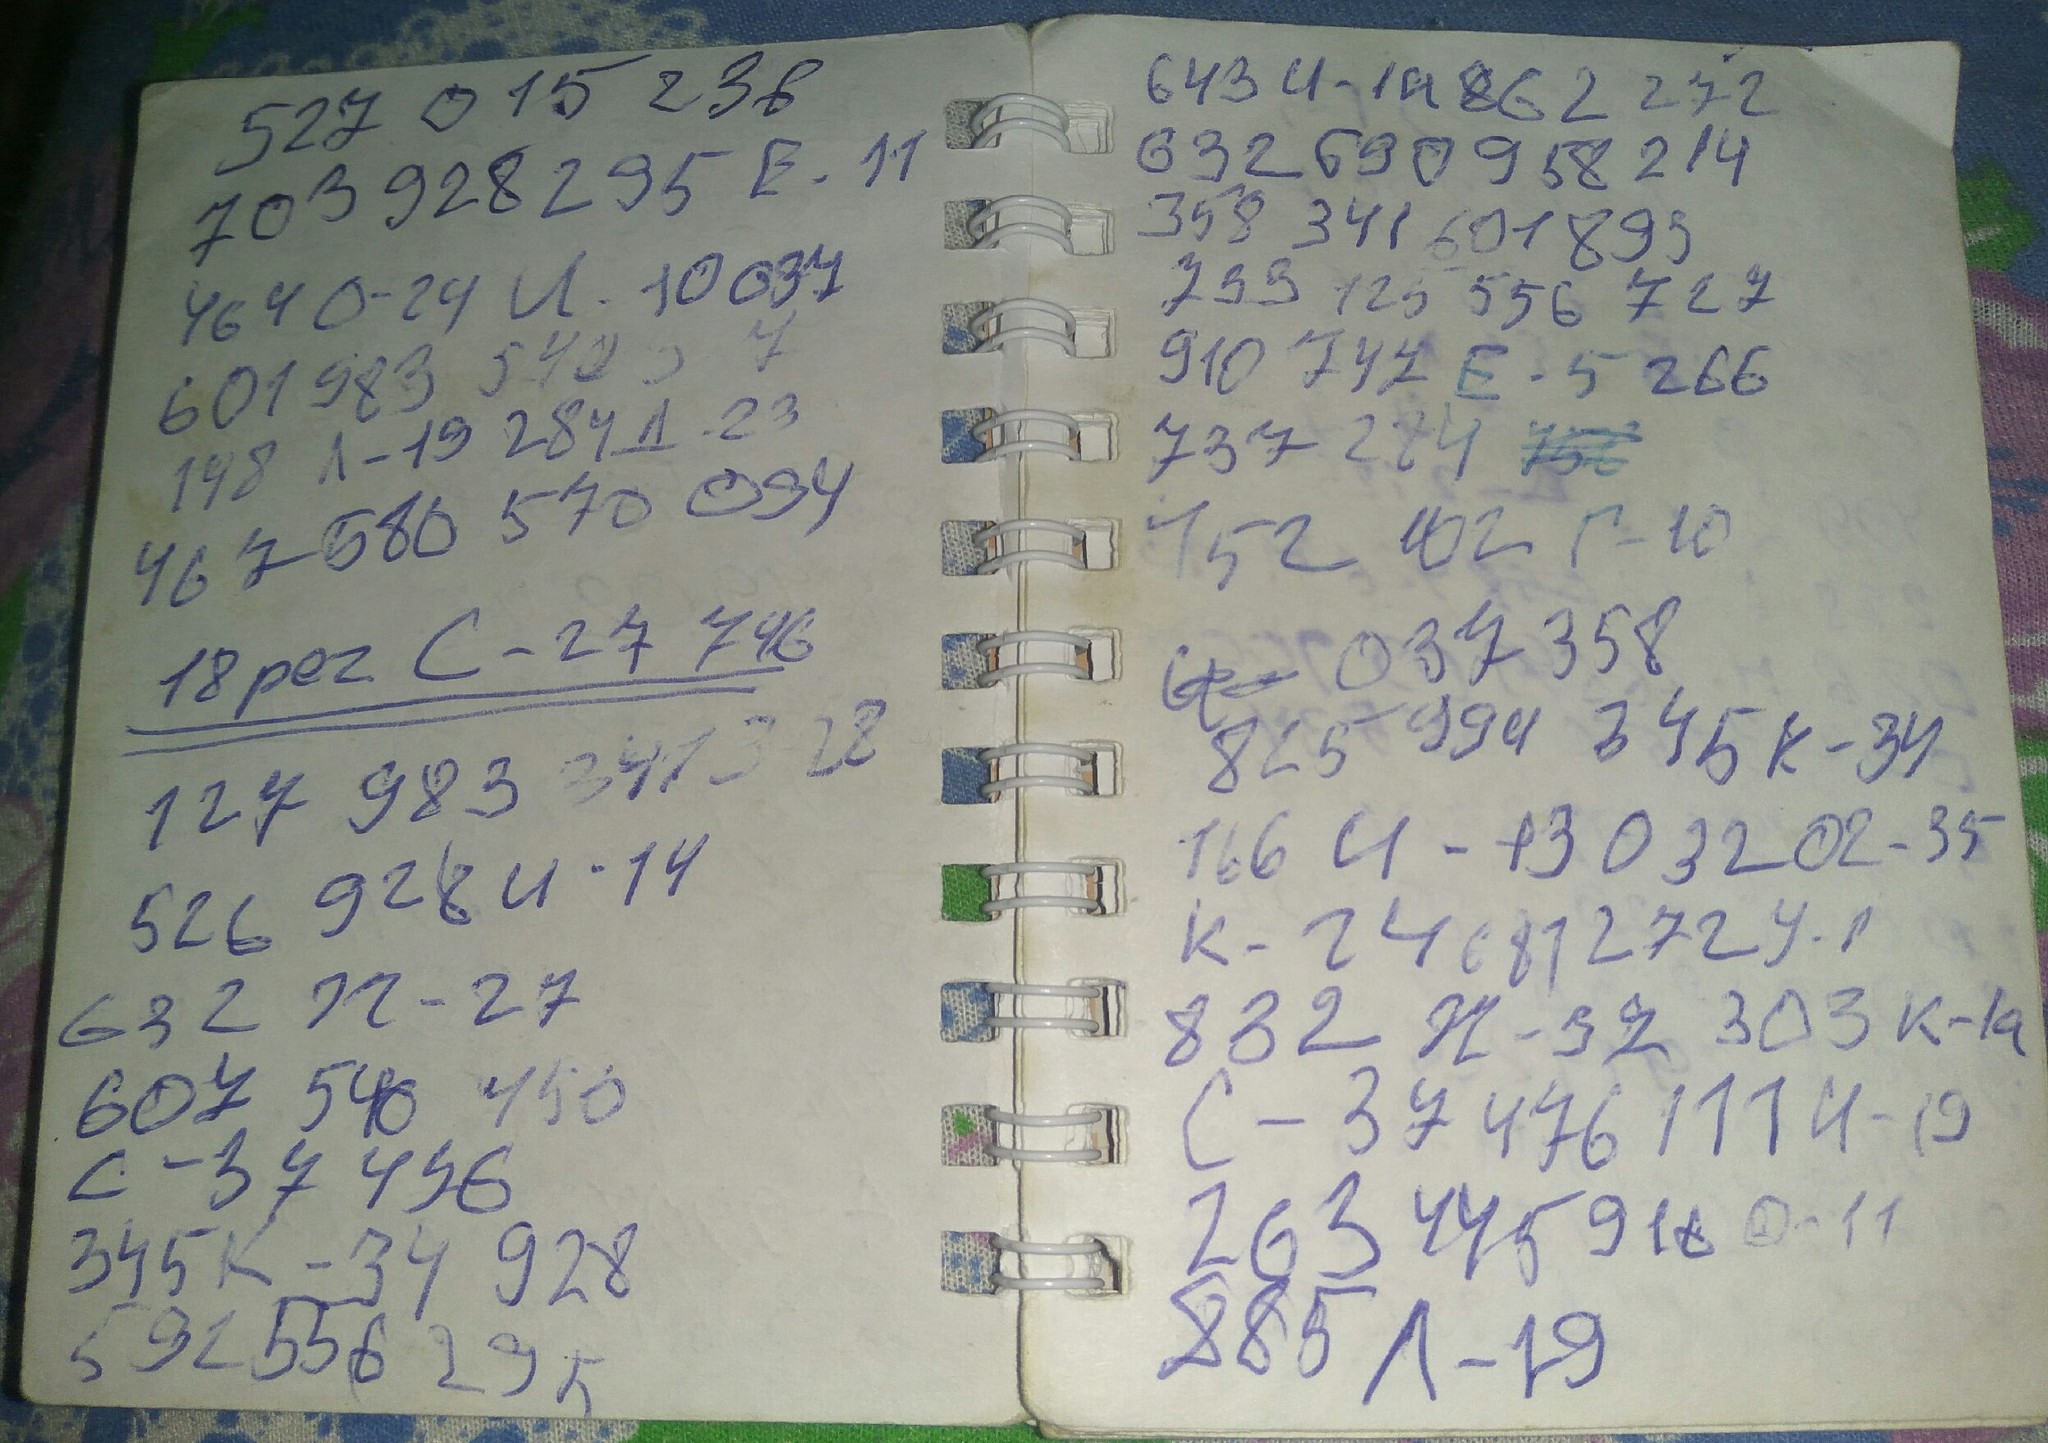 527 015 238
703 928 295 Е-11
464 О-24 И-10 037
601 983 7
148 Л-19 284 Д-23
467 580 570 094
18 рег С-27 746
127 983 341 З-28
526 928 И-14
632 П-27
607 540 450
С-37 496
345 К-34 928
592 556 295
643 И-1а 862 272
632 690 958 214
358 341 601 899
799 125 556 727
910 747 Е-5 266
737 284
452 402 Г-10
037 358
825 994 345 К-34
166 И-13 032 02-35
К-24 681 272 У-1
832 Ж-37 303 К-1а
С-37 476 111 И-19
263 445 О-11
885 Л-19